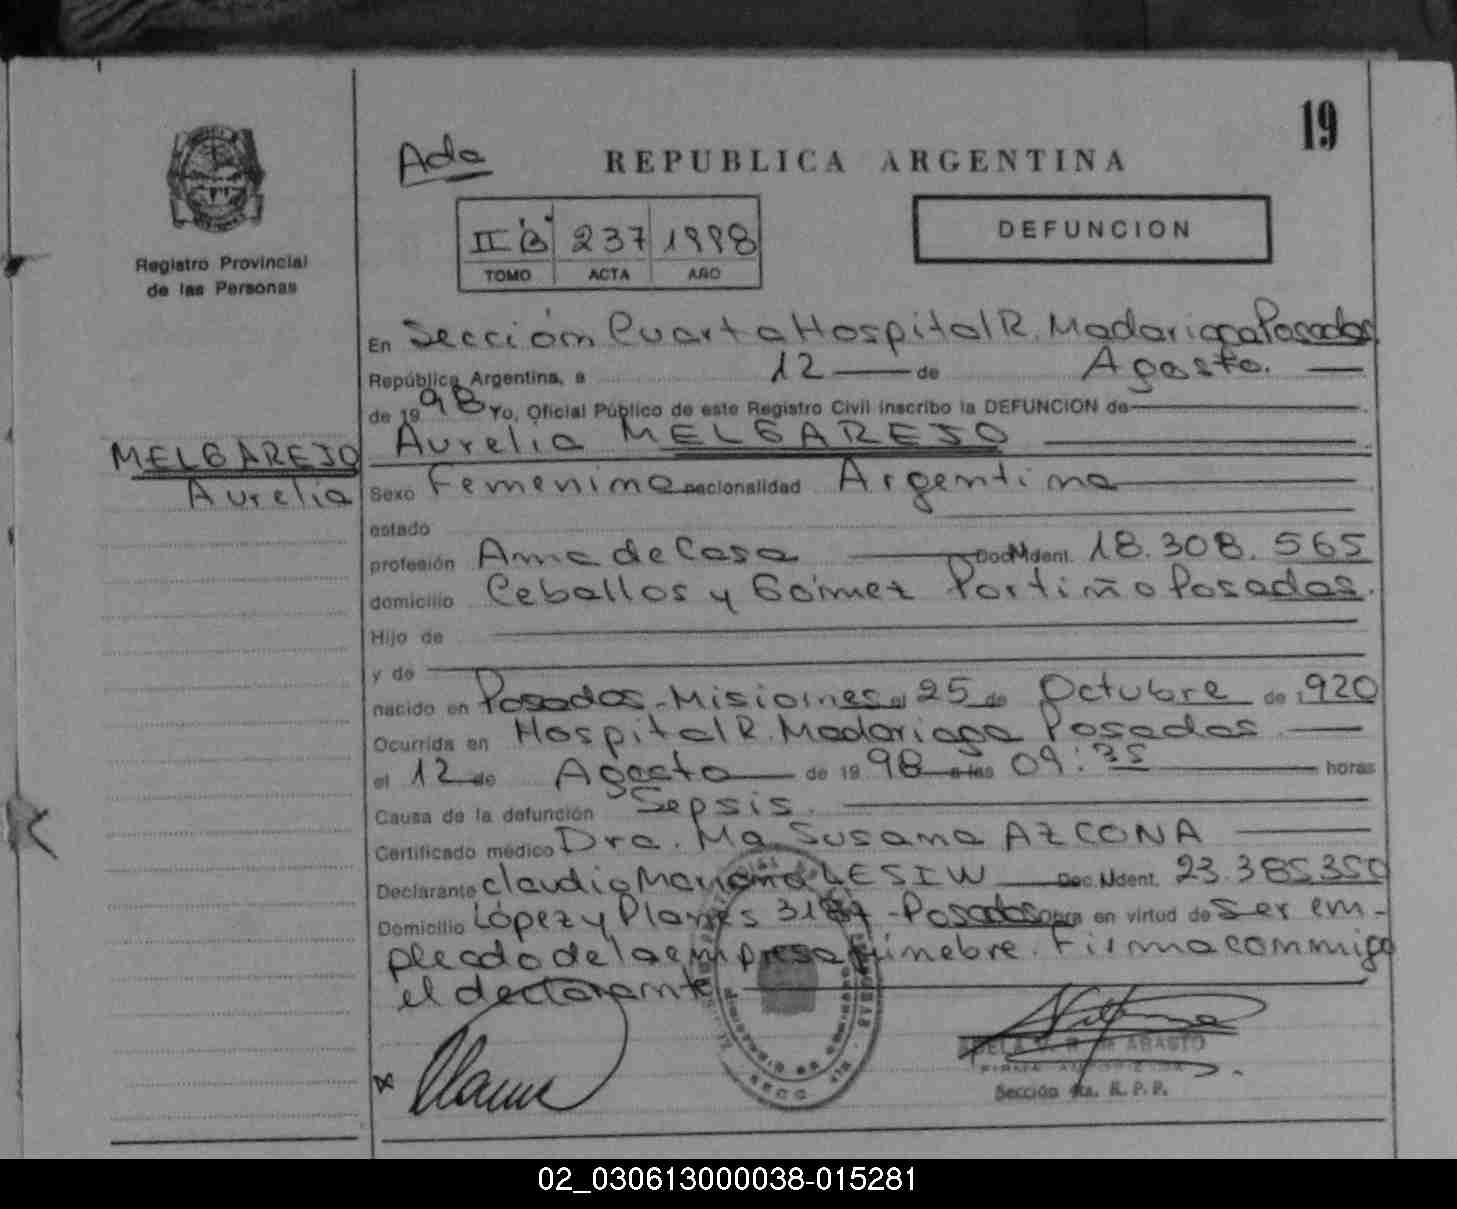 19
Ada
REPUBLICA ARGENTINA
II "B" 237 1998
TOMO ACTA AÑO
DEFUNCION
Registro Provincial
de las Personas
En Sección Cuarta Hospital R. Madariaga Posadas
República Argentina, a 12 de Agosto.
de 1998 Yo, Oficial Público de este Registro Civil inscribo la DEFUNCION de
Aurelia MELGAREJO
MELGAREJO
Aurelia
Sexo Femenino nacionalidad Argentina
estado
profesión Ama de Casa Doc. N Ident. 18.308.565
domicilio Ceballos y Gómez Portiño Posadas.
Hijo de
y de
nacido en Posadas - Misiones el 25 de Octubre de 1920
Ocurrida en Hospital R. Madariaga Posadas
el 12 de Agosto de 1998 a las 09:35 horas
Causa de la defunción Sepsis.
Certificado médico Dra. Ma Susana AZCONA
Declarante Claudio Mariano LESIW Doc. N Ident. 23.385.350
Domicilio López y Planes 3187 - Posadas obra en virtud de Ser em-
pleado de la empresa fúnebre. Firma conmigo
el declarante
DE ABASTO
Sección 4ta. R. P. P.
02_030613000038-015281